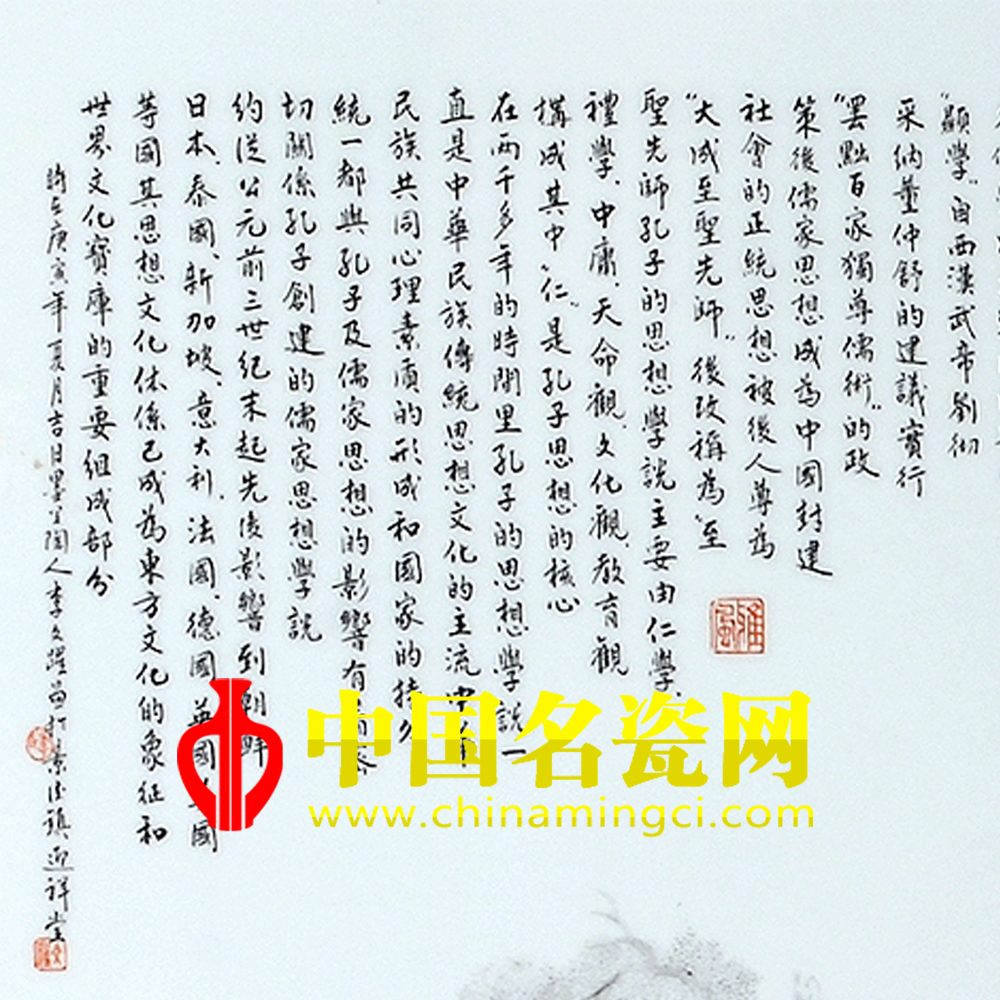 “顯學”。自西漢武帝劉彻
采納董仲舒的建議實行
“罢黜百家獨尊儒術”的政
策後儒家思想成為中國封建
社會的正統思想被後人尊為
“大成至聖先師”後改稱為“至
聖先師孔子的思想學說主要由仁學、
禮學、中庸、天命觀、文化觀、教育觀
構成其中“仁”是孔子思想的核心
在兩千多年的時間里孔子的思想學說一
直是中華民族傳統思想文化的主流中華
民族共同心理素质的形成和國家的持久
統一都與孔子及儒家思想的影響有着密
切關係孔子創建的儒家思想學說
約從公元前三世纪末起先後影響到朝鮮
日本、泰國、新加坡、意大利、法國、德國、英國、美國
等國其思想文化体係已成為東方文化的象征和
世界文化寶庫的重要組成部分
時在庚寅年夏月吉日墨 陶人李文躍畫於景德鎮迎祥堂
雅風
中国名瓷网
www.chinamingci.com